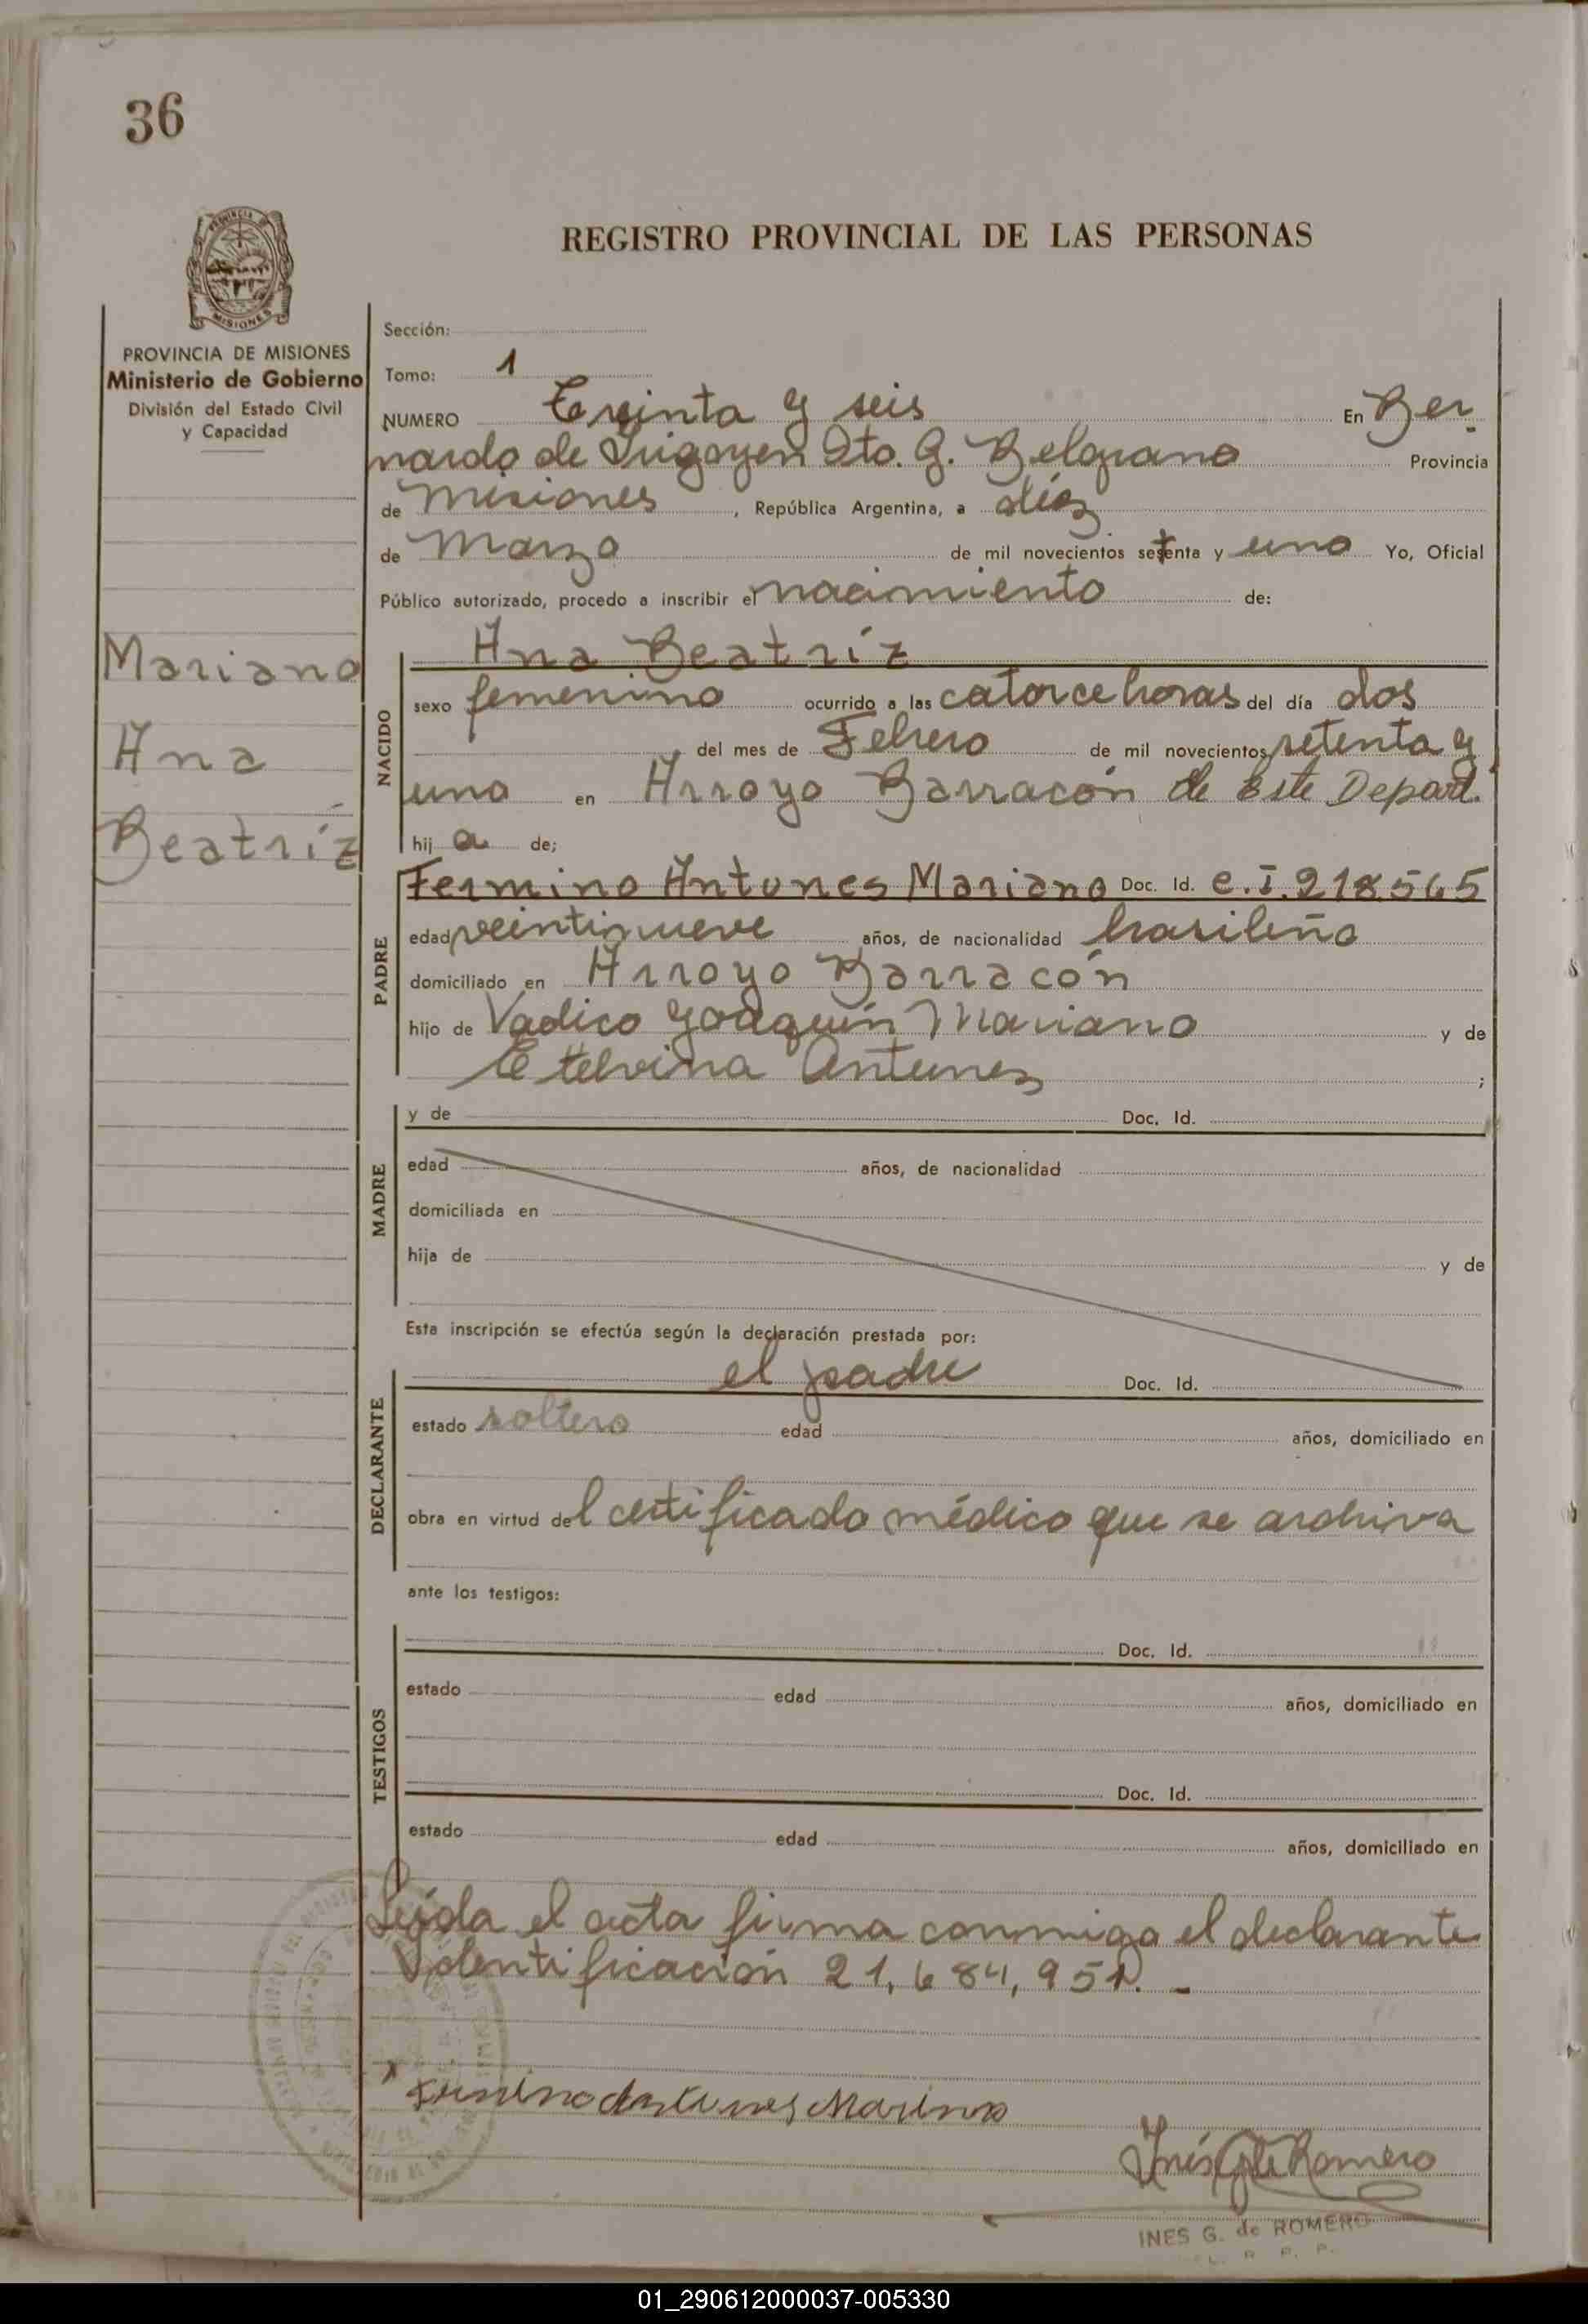 36
REGISTRO PROVINCIAL DE LAS PERSONAS
PROVINCIA DE MISIONES
Ministerio de Gobierno
División del Estado Civil
y Capacidad
Mariano
Ana
Beatríz
Sección:
Tomo: 1
NUMERO Treinta y seis En Ber
nardo de Irigoyen Dto. G. Belgrano Provincia
de Misiones, República Argentina, a diez
de Marzo de mil novecientos setenta y uno Yo, Oficial
Público autorizado, procedo a inscribir el nacimiento de:
Ana Beatríz
NACIDO
sexo femenino ocurrido a las catorce horas del día dos
del mes de Febrero de mil novecientos setenta y
uno en Arroyo Barracón de Este Depart.
hij a de;
PADRE
Fermino Antunes Mariano Doc. Id. C.I. 218.565
edad veintinueve años, de nacionalidad brasileño
domiciliado en Arroyo Barracón
hijo de Vadico Joaquín Mariano y de
Etelvina Antunes ;
MADRE
y de Doc. Id.
edad años, de nacionalidad
domiciliada en
hija de y de
Esta inscripción se efectúa según la declaración prestada por:
DECLARANTE
el padre Doc. Id.
estado soltero edad años, domiciliado en
obra en virtud del certificado médico que se archiva
ante los testigos:
TESTIGOS
Doc. Id.
estado edad años, domiciliado en
Doc. Id.
estado edad años, domiciliado en
Leída el acta firma conmigo el declarante
Identificación 21,684,951. -
Fermino Antunes Mariano
Inés G de Romero
INES G. de ROMERO
01_290612000037-005330